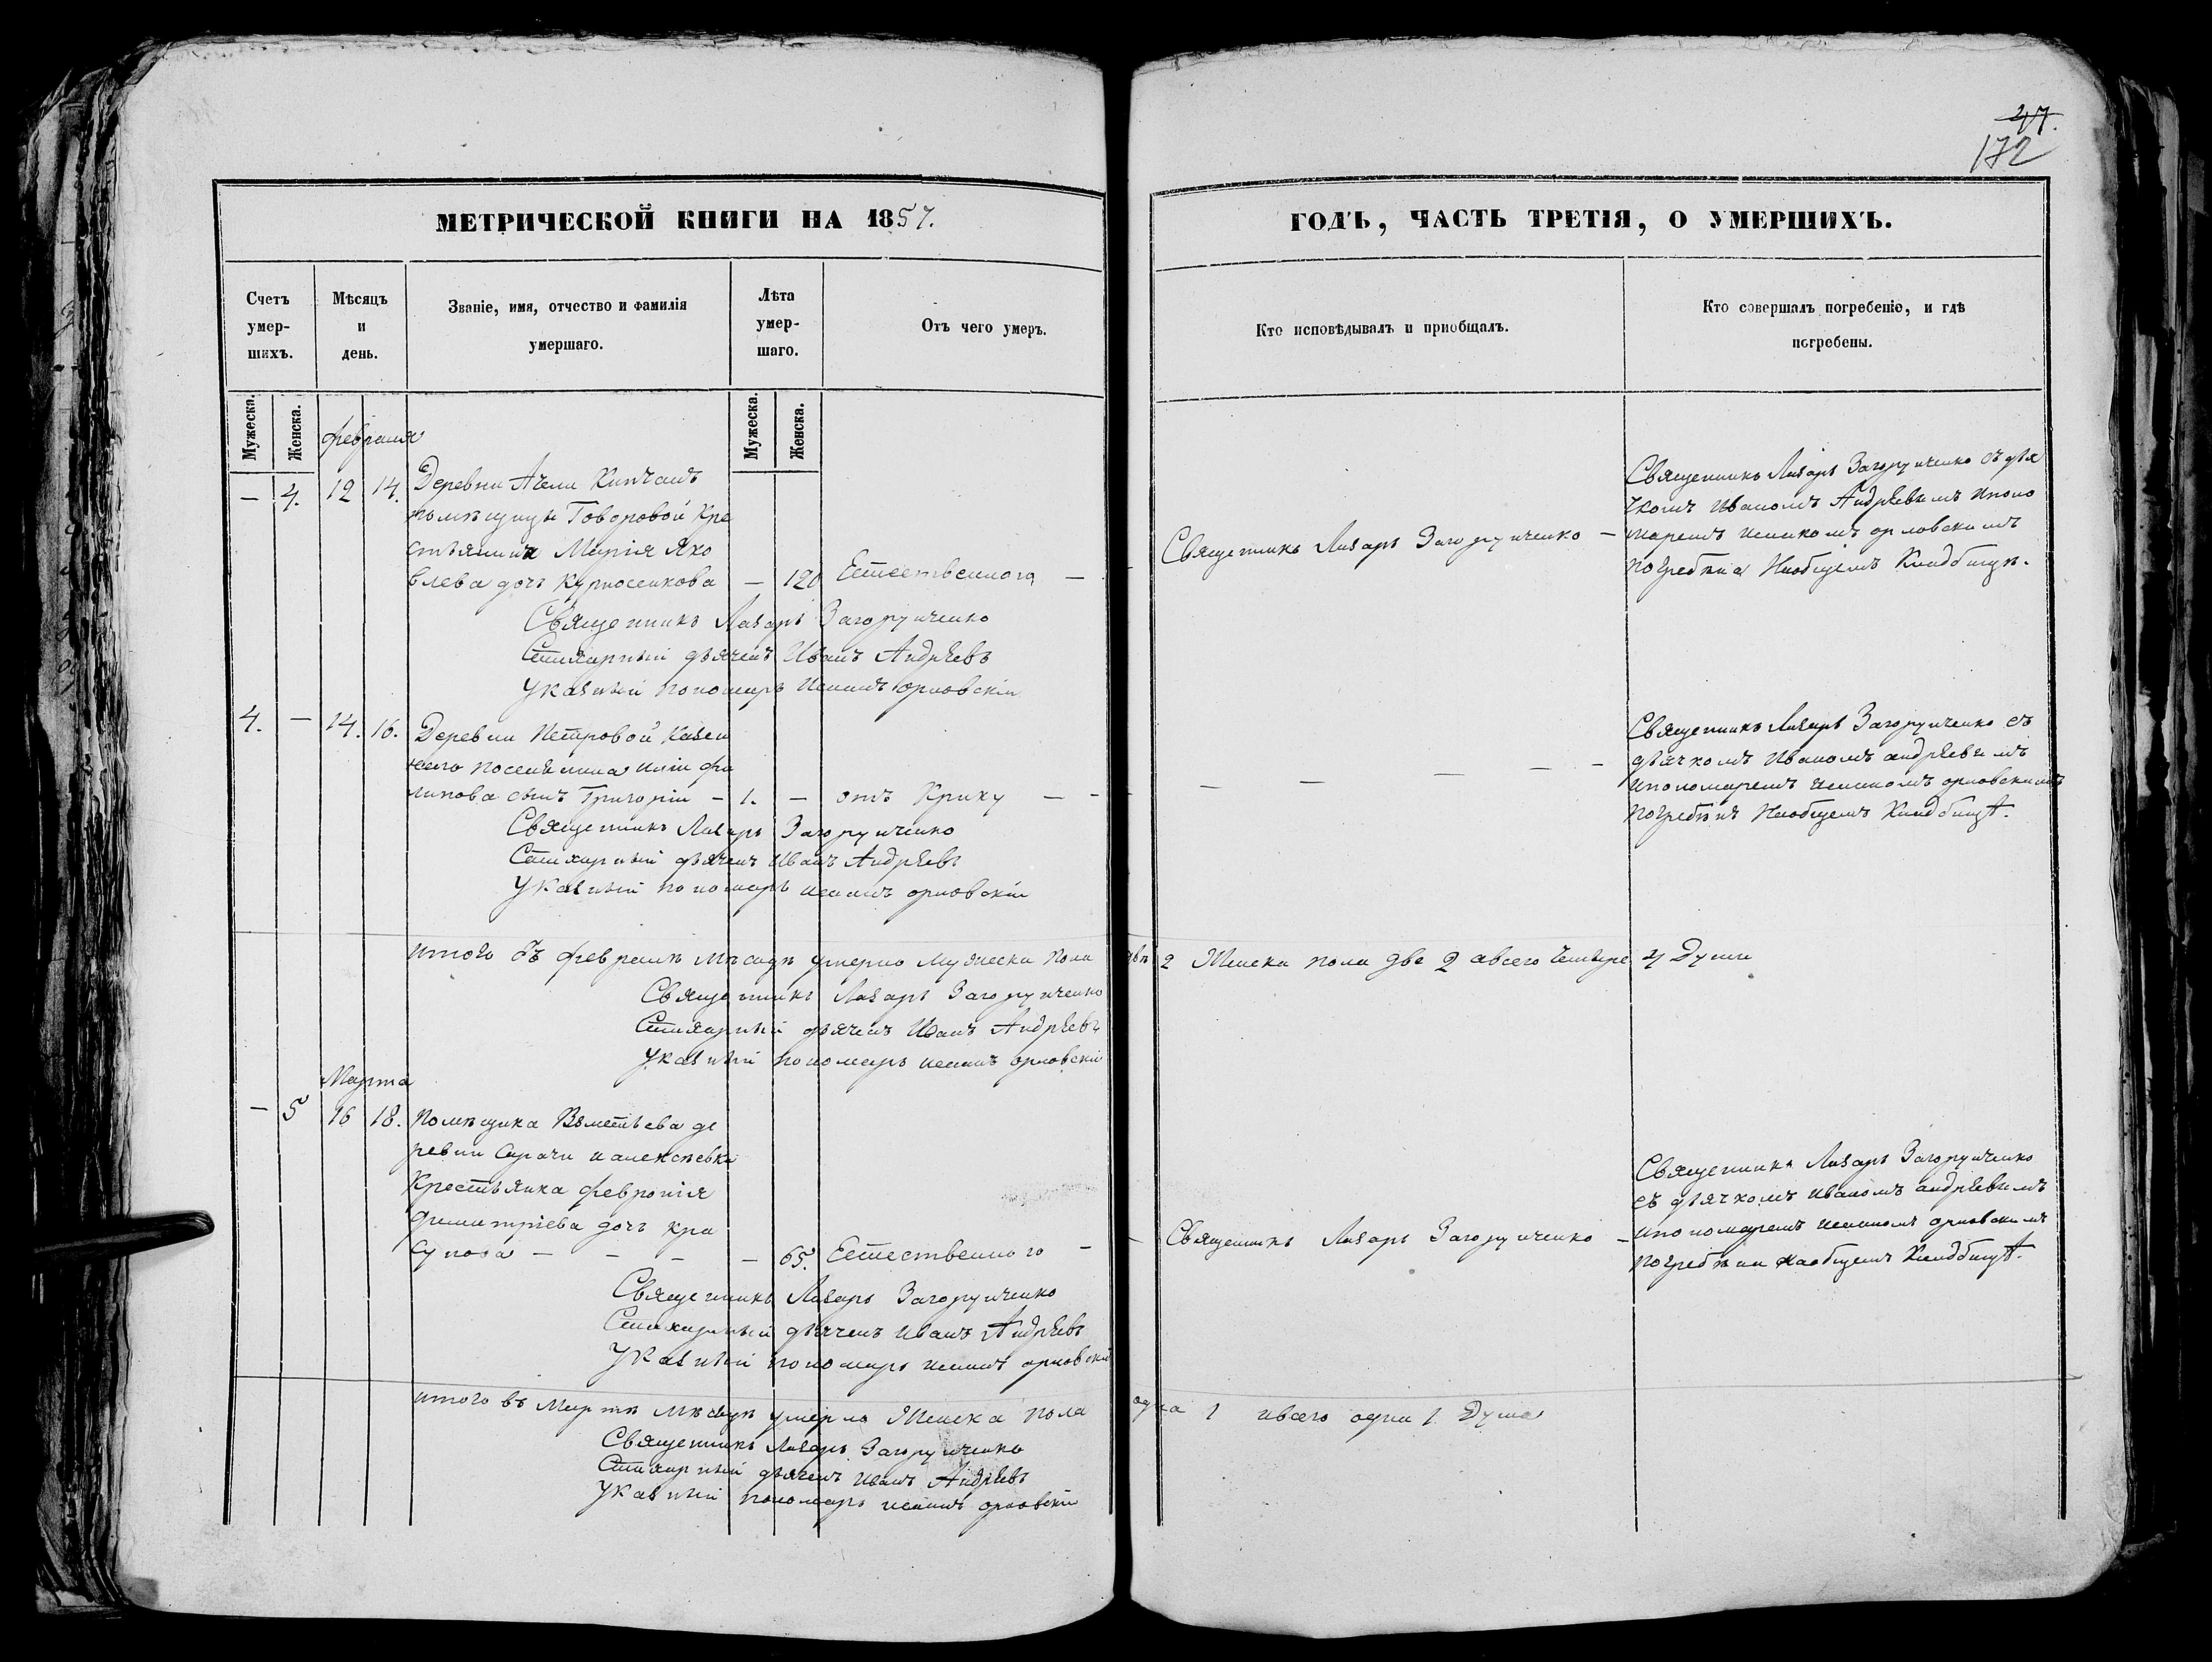 47.
172
МЕТРИЧЕСКОЙ КНИГИ НА 1857.
ГОДЪ, ЧАСТЬ ТРЕТІЯ, О УМЕРШИХЪ.
Счетъ умер-шихъ.
Мѣсяцъ и день.
Званіе, имя, отчество и фамилія умершаго.
Лѣта умер-шаго.
Отъ чего умеръ.
Кто исповѣдывалъ и пріобщалъ.
Кто совершалъ погребеніе, и гдѣ погребены.
Мужеска.
Женска.
Мужеска.
Женска.
февраля
— 4. 12 14. Деревни Ачели Кипчакъ
помѣщицы Говоровой Кре
стьянка Марія Яко
влева дочь Курносенкова — 120 Естественного —
Священникъ Лазарь Загоруйченко —
Священникъ Лазарь Загоруйченко съ дья
чкомъ Иваномъ Андрѣевымъ ипоно
маремъ орловскимъ
погребена Наобщемъ Кладбищѣ.
Священникъ Лазарь Загоруйченко
Стихарный дьячекъ Иванъ Андрѣевъ
Указный пономарь орловскій
4. — 14. 16. Деревни Петровой Казен
ного поселянина фи
липова сынъ Григорій — 1. — отъ Крику — —
— — — — —
Священникъ Лазарь Загоруйченко съ
дьячкомъ Иваномъ андрѣевымъ
ипономаремъ орловскимъ
погребенъ Наобщемъ Кладбищѣ.
Священникъ Лазарь Загоруйченко
Стихарный дьячекъ Иванъ Андрѣевъ
Указный пономарь орловскій
итого въ февралѣ мѣсяцѣ умерло Мужеска пола два 2 Женска пола две 2 авсего Четыре 4 Души
Священникъ Лазарь Загоруйченко
Стихарный дьячекъ Иванъ Андрѣевъ
Указный пономарь орловскій
Марта
— 5 16 18. Помѣщика де
ревни Сарачи
Крестьянка феврония
димитріева дочь кра
сулова — — — — 65. Естественного —
— Священникъ Лазарь Загоруйченко —
Священникъ Лазарь Загоруйченко
съ дьячкомъ иваномъ андрѣевымъ
ипономаремъ орловскимъ
погребена наобщемъ Кладбищѣ.
Священникъ Лазарь Загоруйченко
Стихарный дьячекъ иванъ Андрѣевъ
Указный пономарь орловскій
итого въ Мартѣ мѣсяцѣ умерло Женска пола одна 1 ивсего одна 1 Душа
Священникъ Лазарь Загоруйченко
Стихарный дьячекъ иванъ Андрѣевъ
Указный пономарь орловскій